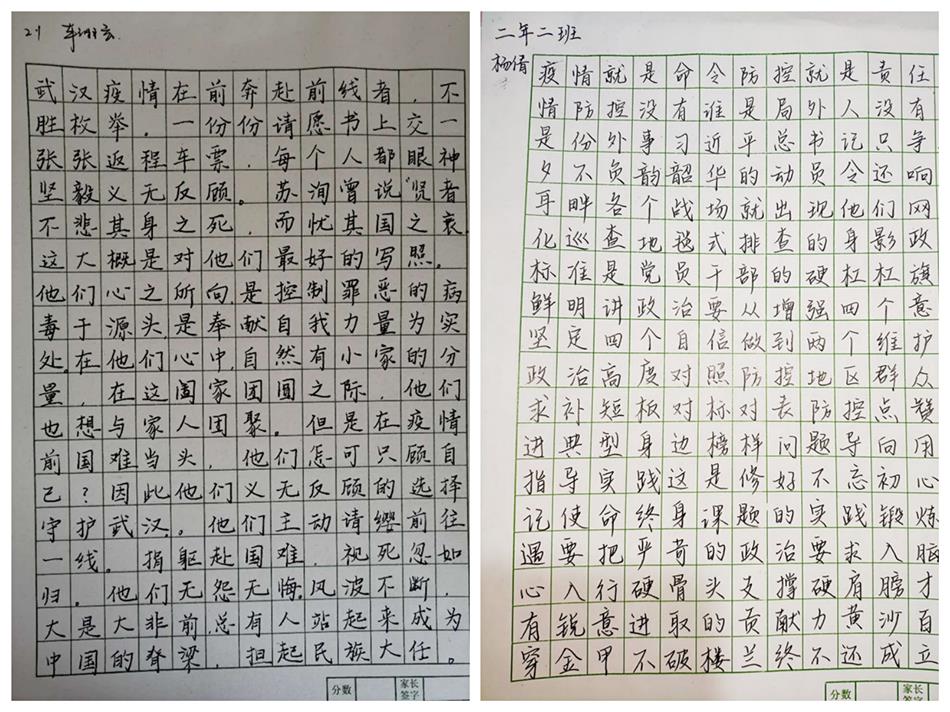 21 车
武汉疫情在前奔赴前线者,不
胜枚举。一份份请愿书上交一
张张返程车票,每个人都眼神
坚毅义无反顾。苏洵曾说“贤者
不悲其身之死,而忧其国之衰
这大概是对他们最好的写照。
他们心之所向,是控制罪恶的病
毒于源头,是奉献自我力量为实
处。在他们心中,自然有小家的分
量,在这国家团圆之际,他们
也想与家人团聚。但是在疫情
前国难当头,他们怎可只顾自
己?因此他们义无反顾的选择
守护武汉。他们主动请缨前往
一线。捐躯赴国难,视死忽如
归。他们无怨无悔,风波不断,
大是大非前,总有人站起来成为
中国的脊梁,担起民族大任。
分数 家长签字
二年二班
杨倩
疫情就是命令防控就是责任
情防控没有谁是局外人没有
是份外事习近平总书记只争
夕不负韵韶华的动员令还响
耳畔各个战场就出现他们网
化巡查地毯式排查的身影政
标准是党员干部的硬杠杠旗
鲜明讲政治要从增强四个意
坚定四个自信做到两个维护
政治高度对照防控地区群众
求补短板对标对表防控点赞
进典型身边榜样问题导向用
指导实践这是修好不忘初心
记使命终身课题的实践锻炼
遇要把严苛的政治要求入脑
心入行硬骨头支撑硬肩膀才
有锐意进取的贡献力黄沙百
穿金甲不破楼兰终不还成立
分数 家长签字